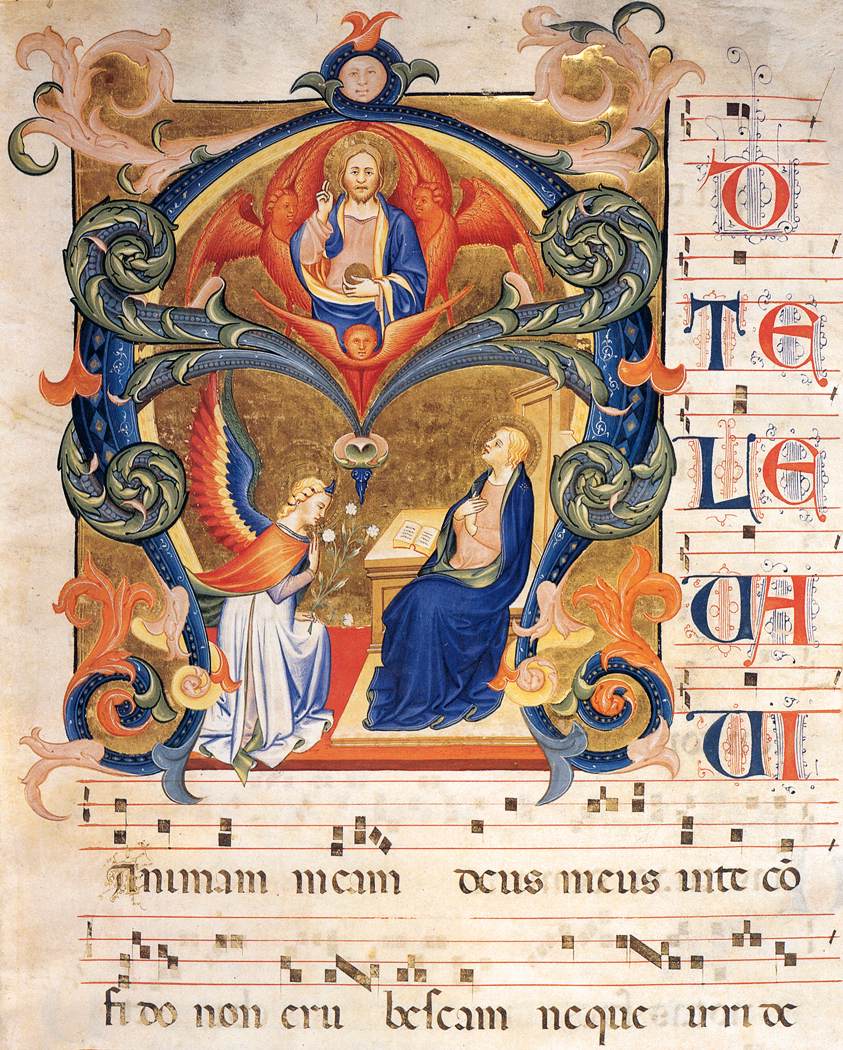 AD
TE
LE
UA
UI
Animam meam deus meus inte cō
fi do non eru bescam neque irri de